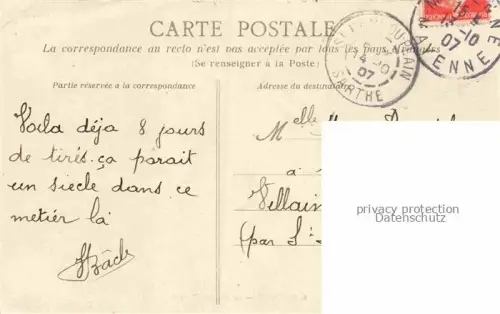 CARTE POSTALE
La correspondance au recto n'est pas acceptée par tous les pays étrangers
(Se renseigner à la Poste)
Partie réservée à la correspondance
Adresse du destinataire
SARTHE
07
15
10
07
ENNE
Voila déja 8 jours
de tirés. ça parait
un siecle dans ce
metier là
Melle
à
Villain
(par St
privacy protection
Datenschutz